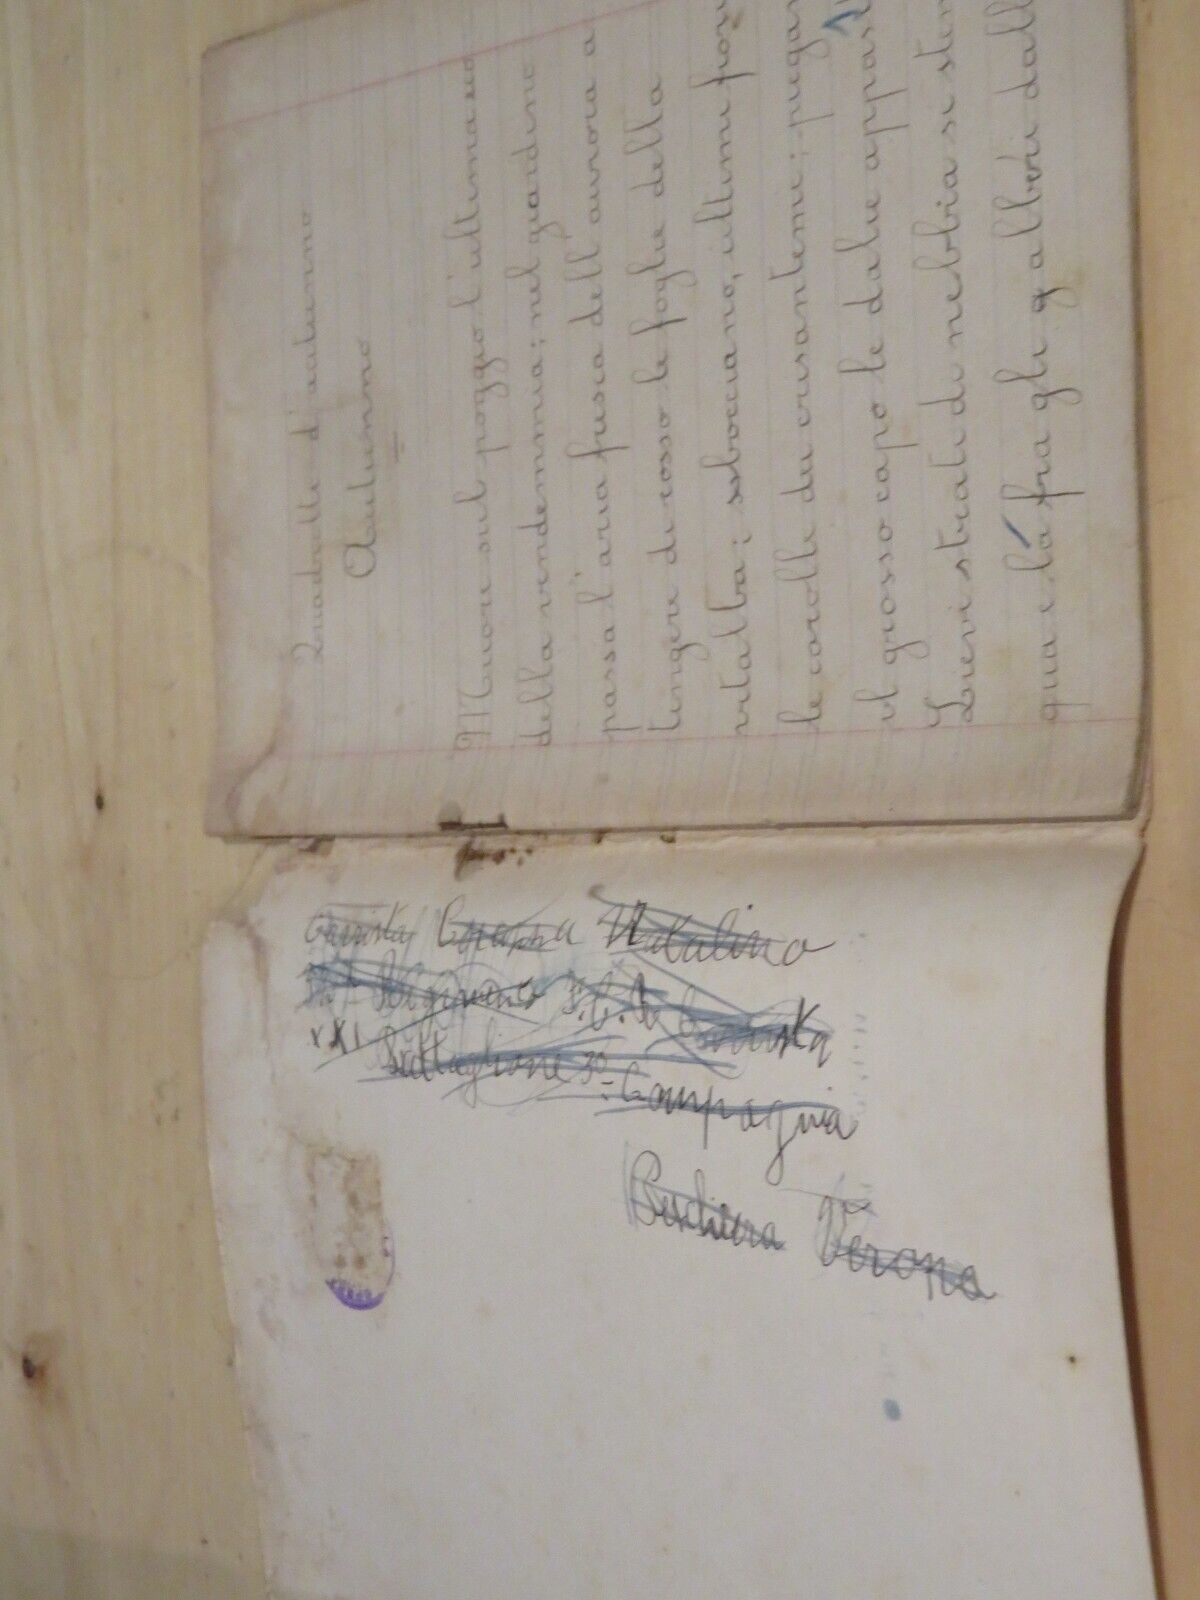 Quadretto d'autunno
Autunno
Muore sul poggio l'ultimo suo
della vendemmia; nel giardino
passa l'aria fresca dell'aurora a
tingere di rosso le foglie della
vitalba; sbocciano, ultimi fiori
le corolle dei crisantemi; piegan
il grosso capo le dalie appas
Lievi strati di nebbia si sten
qua e là fra gli alberi dall
Carrista Natalino
Reggimento Carrista
XXI Battaglione 3ª Compagnia
Verona